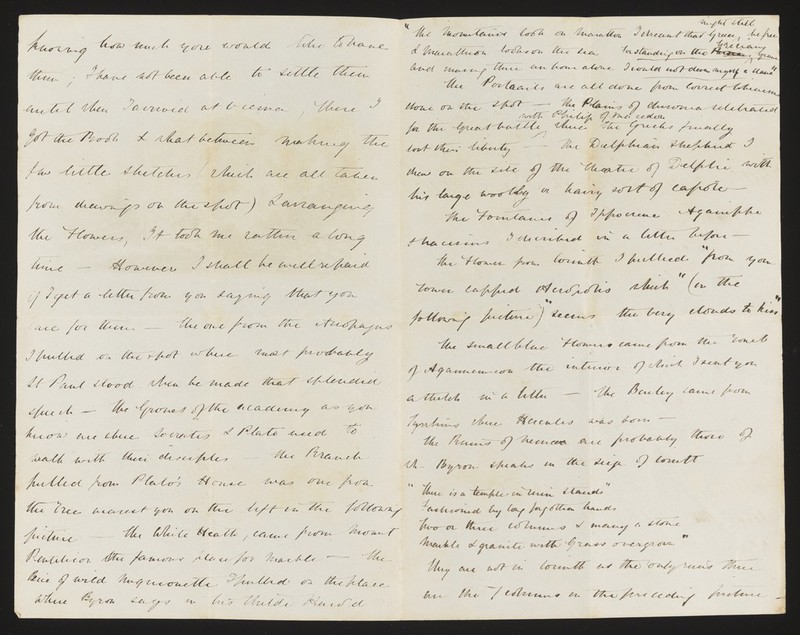 knowing how much you would like to have
them, I have not been able to settle them
until when I arrived at Vienna There I
got the Book & what between making the
few little sketches (which are all taken
from drawings on the spot) & arranging
the Flowers, It took me rather a long
time — However I shall be well repaid
if I get a letter from you saying that you
are for them — The one from the Areopagus
I pulled on the spot where most probably
St Paul stood when he made that splendid
speech — The Groves of the Academy as you
know are where Socrates & Plato used to
walk with their disciples — The Branch
pulled from Plato's House was one from
the Tree nearest you on the left in the following
picture — The White Heath, came from Mount
Pentelicon the famous place for Marble — The
piece of wild Mignionette I pulled on the place
where Byron says in his Childe Harold
"The Mountains look on Marathon I dreamt that Greece might still be free
& Marathon looks on the sea for standing on the Persians Grave
and musing there an hour alone I could not deem myself a slave"
The Portraits are all done from correct
done on the spot — The Plains of celebrated
for the Great battle with Philip of Macedon where the Greeks finally
lost their liberty — The Delphian Shepherd I
drew on the site of the Theatre of Delphi with
his large woolly or hairy sort of capote —
The Fountains of Ippocrene Aganippe
& I described in a letter before —
The Flower from Corinth I pulled "from yon
tower capped Acropolis which" (in the
following picture) "seems the very clouds to kiss"
The small blue Flowers came from the Tomb
of Agamemnon the interior of which I sent you
a sketch in a letter — The Barley came from
Tyrinthus where Hercules was born —
The Ruins of Nemea are probably those of
which Byron speaks in the Seige of Corinth
"There is a temple in ruin stands"
Fashioned by long forgotten hands
Two or three columns & many a stone
Marble & granite with Grass overgrown"
They are not in Corinth as the only ruins there
are the 7 columns in the preceding picture —